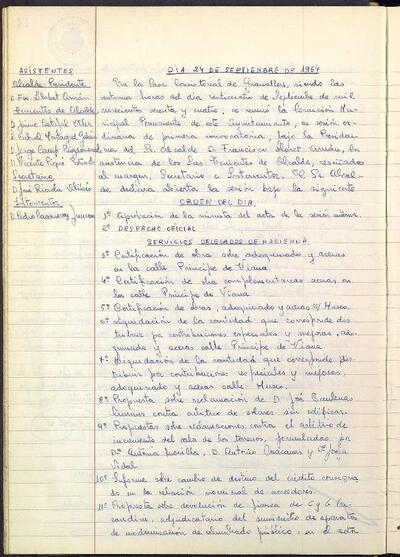 ASISTENTES
Alcalde-Presidente
D. Fco. Llobet Arnán
Tenientes de Alcalde
D. Jaime
D. Jorge Camp
D. Vicente
Secretario
D. José
Interventor
D. Pedro
DIA 24 DE SEPTIEMBRE DE 1964
En la Casa Consistorial de Granollers, siendo las
veintiuna horas del día veinticuatro de Septiembre de mil
novecientos sesenta y cuatro, se reunió la Comisión Mu-
nicipal Permanente de este Ayuntamiento, en sesión or-
dinaria de primera convocatoria, bajo la Presiden-
cia del Sr. Alcalde D. Francisco Llobet Arnán, con
asistencia de los Sres Tenientes de Alcalde, reseñados
al margen, Secretario e Interventor. El Sr Alcal-
de declara abierta la sesión bajo la siguiente
ORDEN DEL DIA
1º Aprobación de la minuta del acta de la sesión anterior.
2º DESPACHO OFICIAL
SERVICIOS DELEGADOS DE HACIENDA
3º Certificación de obra sobre adoquinado y aceras
en la calle Príncipe de Viana.
4º Certificación de obra complementaria aceras en
la calle Príncipe de Viana
5º Certificación de obras, adoquinado y aceras c/ Museo.
6º Liquidación de la cantidad que corresponde dis-
tribuir por contribuciones especiales y mejoras, ado-
quinado y aceras calle Príncipe de Viana.
7º Liquidación de la cantidad que corresponde dis-
tribuir por contribuciones especiales y mejoras,
adoquinado y aceras calle Museo.
8º Propuesta sobre reclamación de D. José Barbenas
Linares contra arbitrio de solares sin edificar.
9º Propuestas sobre reclamaciones contra el arbitrio de
incremento del valor de los terrenos, formuladas por
Dª Antonia D. Antonio y Dª
Vidal
10º Informe sobre cambio de destino del crédito consigna-
do en la relación nominal de acreedores.
11º Propuesta sobre devolución de fianza de
adjudicatario del suministro de aparatos
de modernización de alumbrado público, en el acto